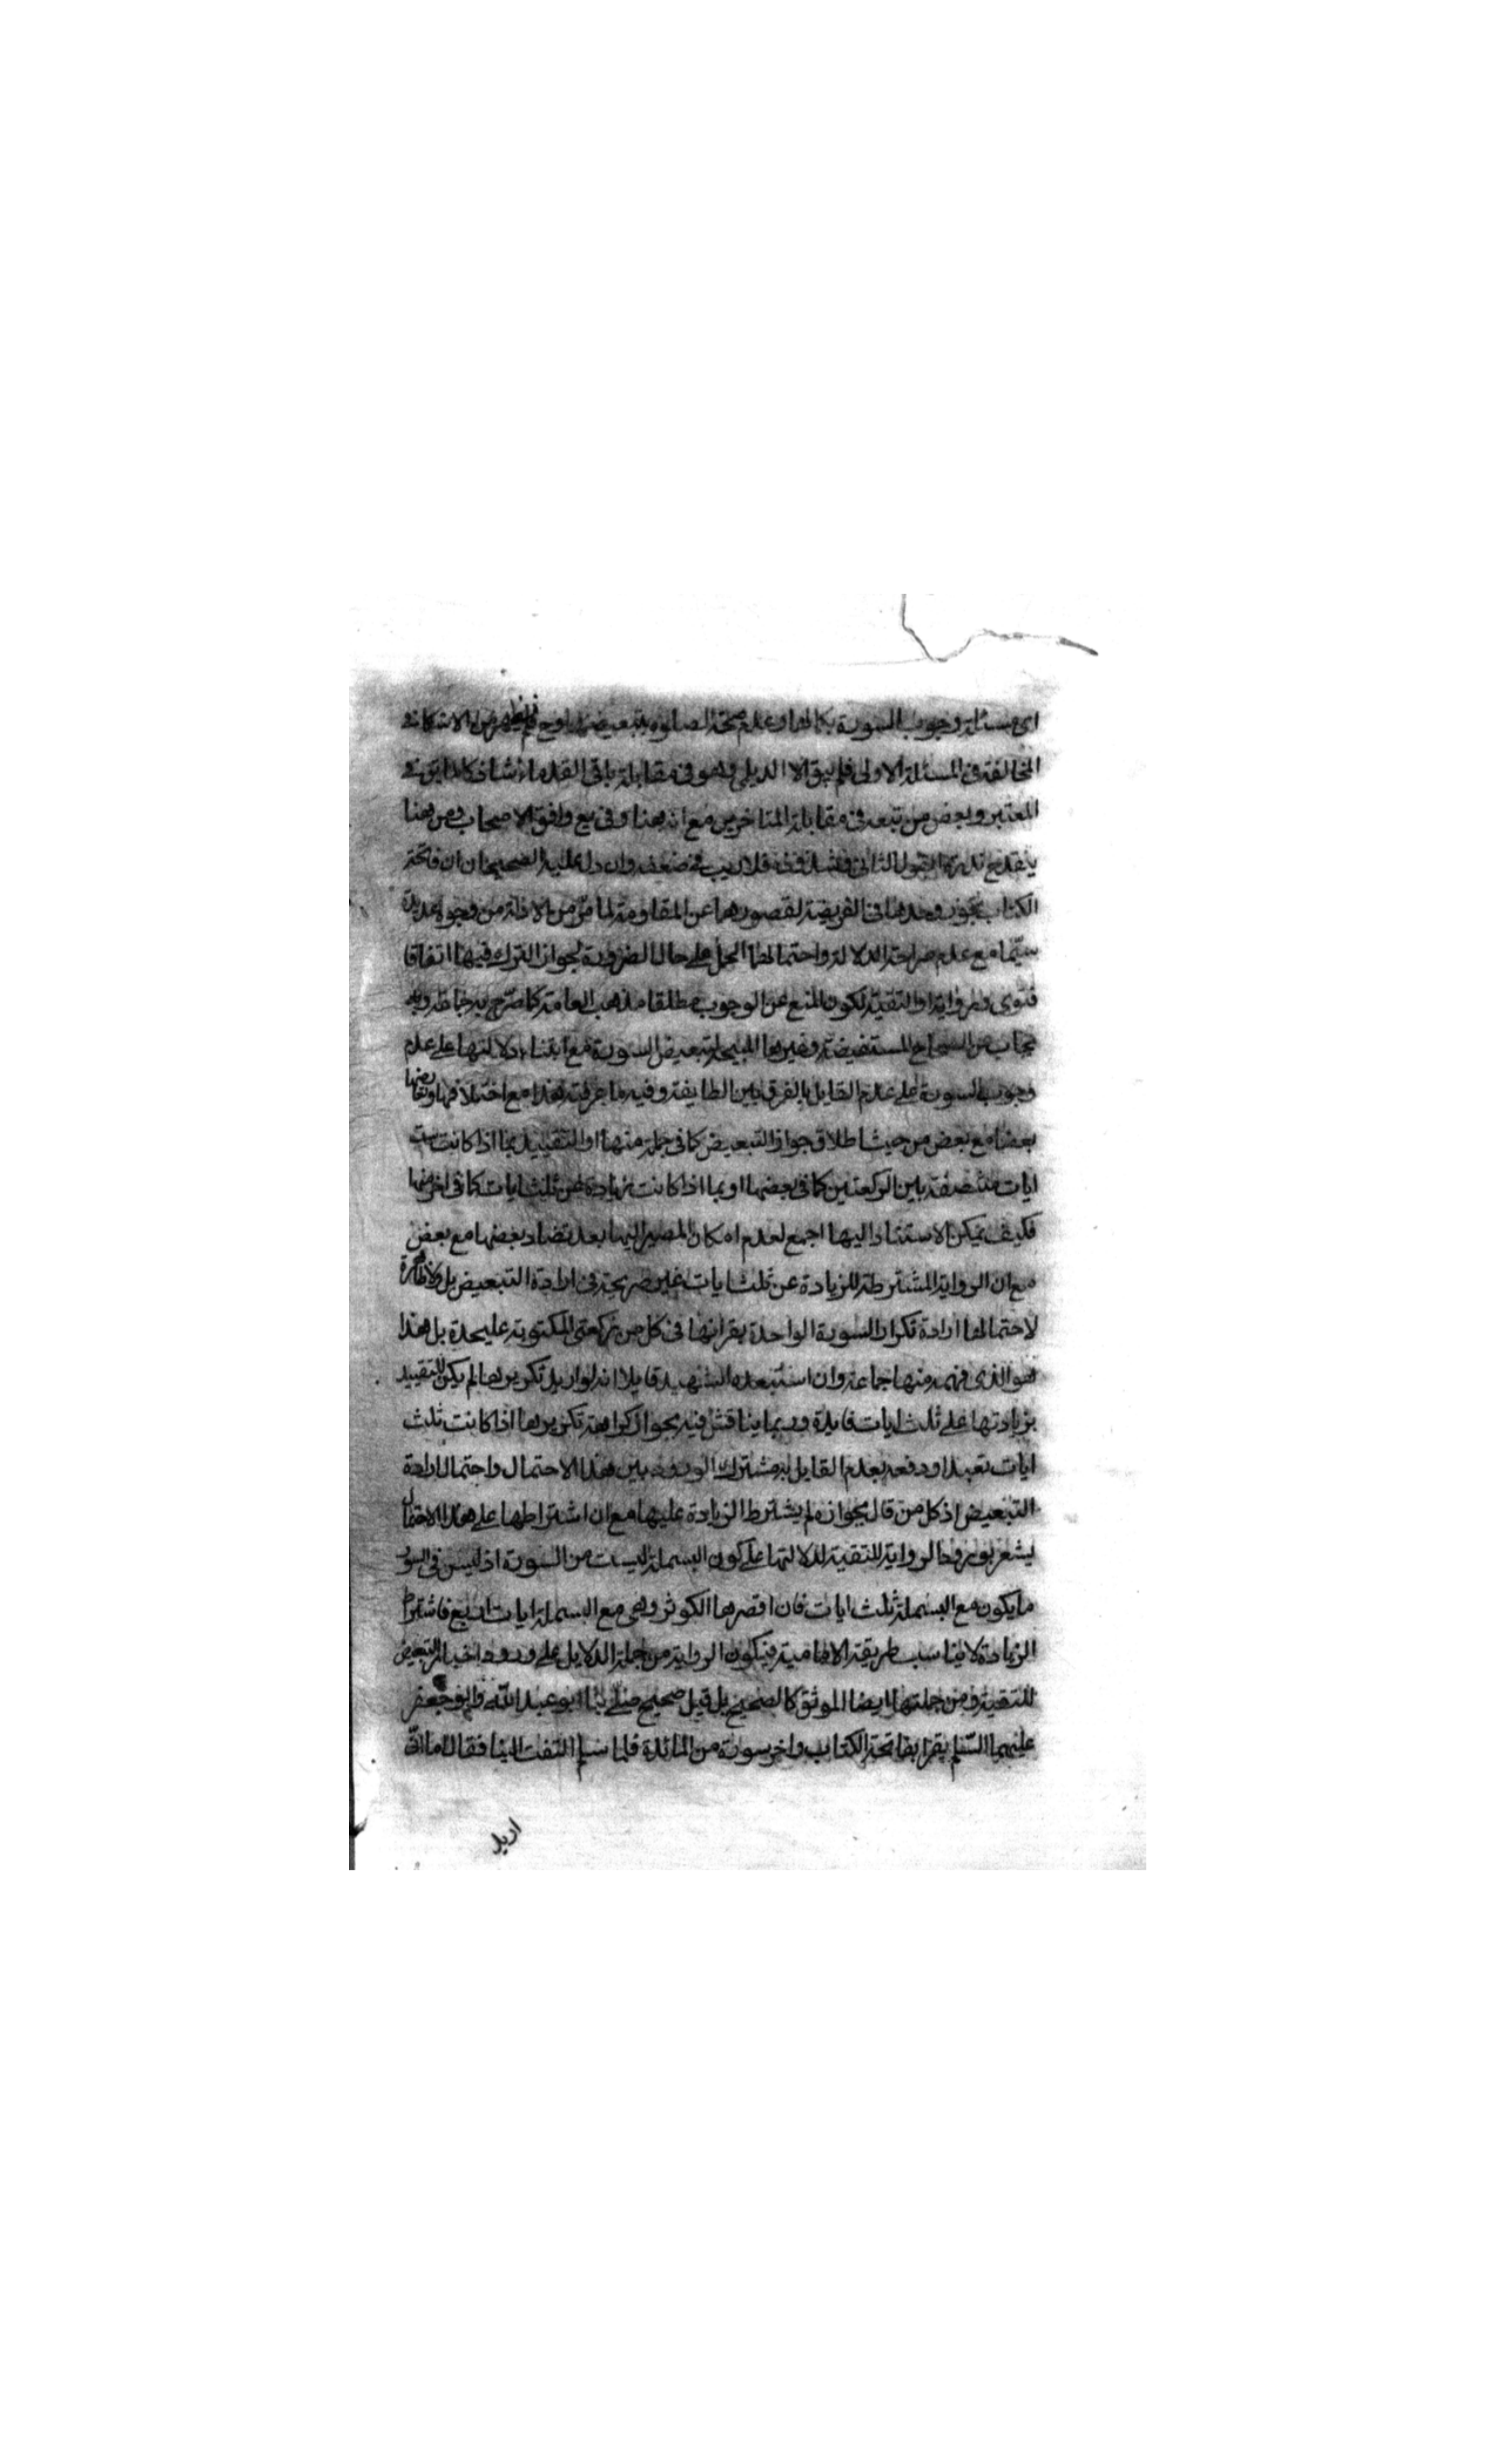 اى مسئلة وجوب السورة بكمالها وعدم صحة الصلوة بتبعيضها وح فلم يظهر من الاسكافى
المخالفة فى المسئلة الاولى فلم يبق الا الديلمى وهو فى مقابلة باقى القدماء شاذ كالماتن فى
المعتبر وبعض من تبعه فى مقابلة المتاخرين مع انه هنا وفى يع وافق الاصحاب ومن هنا
ينقدح ندرة القول الثانى وشذوذه فلا ريب فى ضعفه وان دل عليه الصحيحان ان فاتحة
الكتاب يجوز وحدها فى الفريضة لقصورهما عن المقاومة لما مر من الادلة من وجوه عديدة
سيما مع عدم صراحة الدلالة واحتمالهما الحمل على حال الضرورة لجواز الترك فيها اتفاقا
فتوى ورواية او التقية لكون المنع عن الوجوب مطلقا مذهب العامة كما صرح به جماعة وبه
يجاب عن الصحاح المستفيضة وغيرها المبيحة لتبعيض السورة مع ابتناء دلالتها على عدم
وجوب السورة على عدم القايل بالفرق بين الطايفة وفيه ما عرفته هذا مع اختلافها وتعارضها
بعضا مع بعض من حيث اطلاق جواز التبعيض كما فى جملة منها او التقييد بما اذا كانت ست
ايات منتصفة بين الركعتين كما فى بعضها او بما اذا كانت زيادة عن ثلث ايات كما فى اخر منها
فكيف يمكن الاستناد اليها اجمع لعدم امكان المصير اليها بعد تضاد بعضها مع بعض
مع ان الرواية المشترطة للزيادة عن ثلث ايات غير صريحة فى ارادة التبعيض بل ولا ظاهرة
لاحتمالها ارادة تكرار السورة الواحدة بقرائتها فى كل من ركعتى المكتوبة عليحدة بل هذا
هو الذى فهمه منها جماعة وان استبعده الشهيد قايلا انه لو اريد تكريرها لم يكن للتقييد
بزيادتها على ثلث ايات فايدة وربما يناقش فيه بجواز كراهة تكريرها اذا كانت ثلث
ايات تعبدا ودفعه بعدم القايل به مشترك الورود بين هذا الاحتمال واحتمال ارادة
التبعيض اذ كل من قال بجوازه لم يشترط الزيادة عليها مع ان اشتراطها على هذا الاحتمال
يشعر بورود الرواية للتقية لدلالتها على كون البسملة ليست من السورة اذ ليس فى السور
ما يكون مع البسملة ثلث ايات فان اقصرها الكوثر وهى مع البسملة ايات اربع فاشتراط
الزيادة لا يناسب طريقة الامامية فيكون الرواية من جملة الدلايل على ورود اخبار التبعيض
للتقية ومن جملتها ايضا الموثق كالصحيح بل قيل صحيح صلى بنا ابو عبد الله وابو جعفر
عليهما السلم يقرا بفاتحة الكتاب واخر سورة من المائدة فلما سلم التفت الينا فقال اما انى
اريد